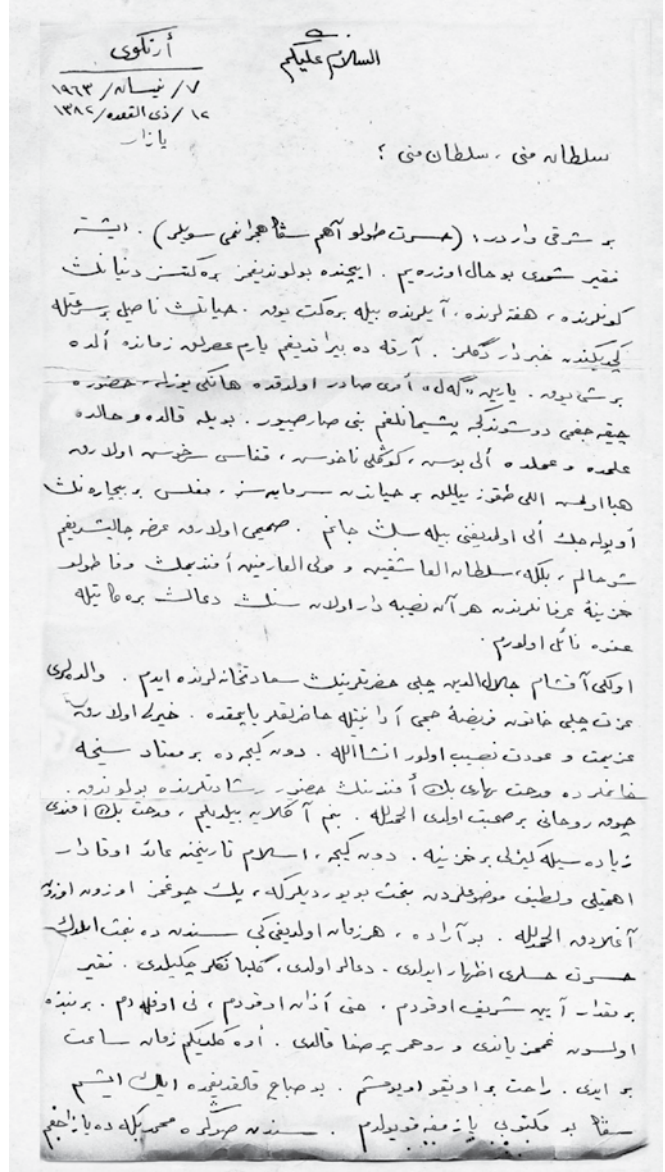 السلام عليكم
أرنكوى
٧/ نيسان/ ١٩٦٣
١٢/ ذى القعده/ ١٣٨٢
يازار
سلطان منى ، سلطان منى ؛
بر شرقى واردر، (حسرت طولو آهم سڭا هجرانمى سويلر) . ايشته
فقير شمدى بو حال اوزره‌يم . ايچنده بولونديغمز بركتسز دنيانڭ
كونلرنده ، هفته‌لرنده، آيلرنده بيله بركت يوق . حياتڭ ناصيل بر سرعتله
كچديكندن خبردار دگلز . آرقه ده بيراقديغم يارم عصرلق زمانده ألده
بر شى يوق . يارين «گل» أمرى صادر اولدقده هانكى يوزله حضوره
چيقه جغمى دوشوندكجه پشيمانلغم بنى صارصيور . بويله قالده و حالده
علمده و عملده ألى بوش ، كوڭلى ناخوش ، قفاسى سرخوش اولارق
هبا اولمش اللى طقوز ييللق بر حياتدن سرمايه سز ، مفلس بر بيچاره نڭ
أوپوله جك ألى اولمديغنى بيله سڭ جانم . صميمى اولارق عرضه چاليشديغم
شو حالم ، بلكه، سلطان العاشقين و مولى العارفين أفنديمڭ وفا طولو
خزينۀ عرفانلرندن هر آن نصيبه دار اولان سنڭ دعاڭ بركاتيله
عفوه نائل اولورم .
اولكى آقشام جلال الدين چلبى حضرتلرينڭ سعادتخانه لرنده ايدم . والده لرى
عزت چلبى خاتون فريضۀ حجى أدا نيتيله حاضرلقلر ياپمقده . خيرلى اولارق
عزيمت و عودت نصيب اولور انشاالله . دون كيجه ده بر معتاد
خانملر ده مدحت بهارى بك أفندينڭ حضور رشادتلرنده بولوندق .
چوق روحانى بر صحبت اولدى الحمدلله . بنم آڭلايه بيلديكم ، مدحت بك افندى
زياده سيله كيزلى بر خزينه . دون كيجه ، اسلام تاريخنه عائد اوقادار
اهميتلى و لطيف موضوعلردن بحث بويورديلركه ، پك چوغمز اوزون اوزون
آغلادق الحمدلله . بو آراده ، هر زمان اولديغى كبى سندن ده بحث ايدلدى
حسرت حسلرى اظهار ايدلدى . دعالر اولدى ، گلبانكلر چكيلدى . فقير
بر مقدار آيين شريف اوقودم ، حتى أذان اوقودم ، نى اوفله دم . بر نبذه
اولسون غممز ياندى و روحمز پر صفا قالدى . أوه كلديكم زمان ساعت
بر ايدى . راحت بر اويقو اويومشم . بو صباح قالقديغمده ايلك ايشم
سڭا بو مكتوبى يازمغه قويولدم . سندن صوڭره محمد بكه ده يازاجغم